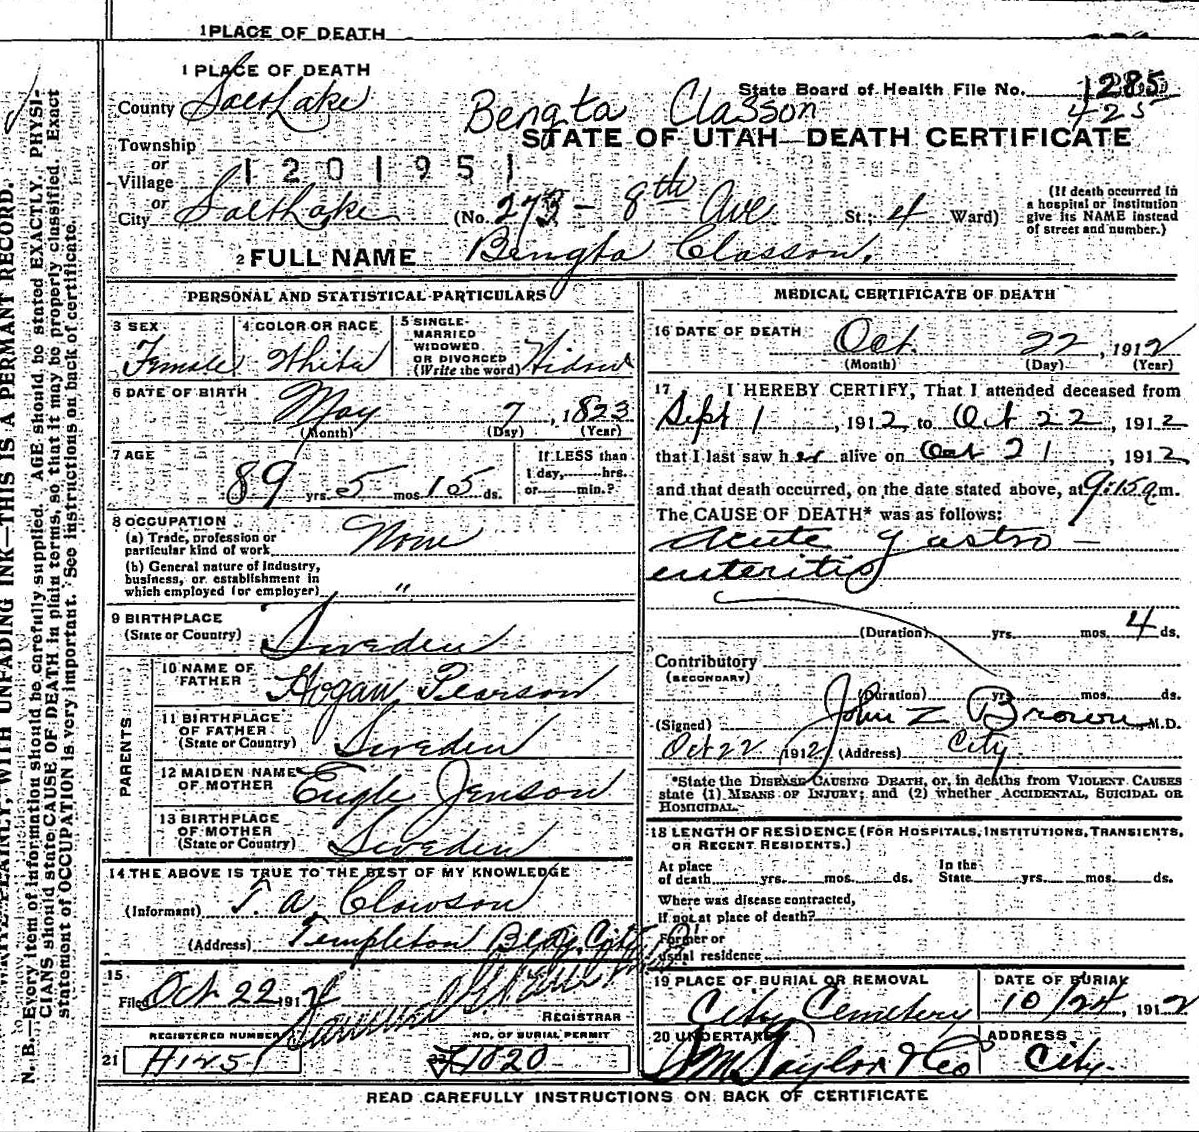 1 PLACE OF DEATH
1 PLACE OF DEATH
County Salt Lake
State Board of Health File No. 1285
425
Bengta Classon
STATE OF UTAH—DEATH CERTIFICATE
Township
or
Village
1201951
or
City Salt Lake (No. 273 - 8th Ave St.; 4 Ward)
(If death occurred in a hospital or institution give its NAME instead of street and number.)
2 FULL NAME Bengta Classon.
PERSONAL AND STATISTICAL PARTICULARS
3 SEX Female
4 COLOR OR RACE White
5 SINGLE MARRIED WIDOWED OR DIVORCED (Write the word) Widow
6 DATE OF BIRTH May 7, 1823
(Month) (Day) (Year)
7 AGE 89 yrs. 5 mos 15 ds.
If LESS than 1 day,------hrs. or------min.?
8 OCCUPATION
(a) Trade, profession or particular kind of work None
(b) General nature of industry, business, or establishment in which employed (or employer) "
9 BIRTHPLACE (State or Country) Sweden
PARENTS
10 NAME OF FATHER Hogan Pearson
11 BIRTHPLACE OF FATHER (State or Country) Sweden
12 MAIDEN NAME OF MOTHER Engle Jenson
13 BIRTHPLACE OF MOTHER (State or Country) Sweden
14 THE ABOVE IS TRUE TO THE BEST OF MY KNOWLEDGE
(Informant) T. A. Clowson
(Address) Templeton Bldg. City
15
Filed Oct 22 1912
REGISTRAR
REGISTERED NUMBER
NO. OF BURIAL PERMIT
21 H1451
1020
MEDICAL CERTIFICATE OF DEATH
16 DATE OF DEATH Oct. 22, 1912
(Month) (Day) (Year)
17 I HEREBY CERTIFY, That I attended deceased from
Sept 1, 1912 to Oct 22, 1912
that I last saw her alive on Oct 21, 1912,
and that death occurred, on the date stated above, at 9:15 a.m.
The CAUSE OF DEATH* was as follows:
acute gastro-
enteritis
(Duration) yrs. mos. 4 ds.
Contributory
(SECONDARY)
(Duration) yrs. mos. ds.
(Signed) John Z Brown, M.D.
Oct 22 1912 (Address) City.
*State the DISEASE CAUSING DEATH, or, in deaths from VIOLENT CAUSES
state (1) MEANS OF INJURY; and (2) whether ACCIDENTAL, SUICIDAL OR
HOMICIDAL.
18 LENGTH OF RESIDENCE (FOR HOSPITALS, INSTITUTIONS, TRANSIENTS,
OR RECENT RESIDENTS.)
At place of death yrs. mos. ds.
In the State yrs. mos. ds.
Where was disease contracted,
if not at place of death?
Former or
usual residence
19 PLACE OF BURIAL OR REMOVAL City Cemetery
DATE OF BURIAL 10/24, 1912
20 UNDERTAKER S M Taylor & Co
ADDRESS City.
READ CAREFULLY INSTRUCTIONS ON BACK OF CERTIFICATE
WRITE PLAINLY, WITH UNFADING INK—THIS IS A PERMANT RECORD.
N. B.—Every item of information should be carefully supplied. AGE should be stated EXACTLY. PHYSI-
CIANS should state CAUSE OF DEATH in plain terms, so that it may be properly classified. Exact
statement of OCCUPATION is very important. See instructions on back of certificate.